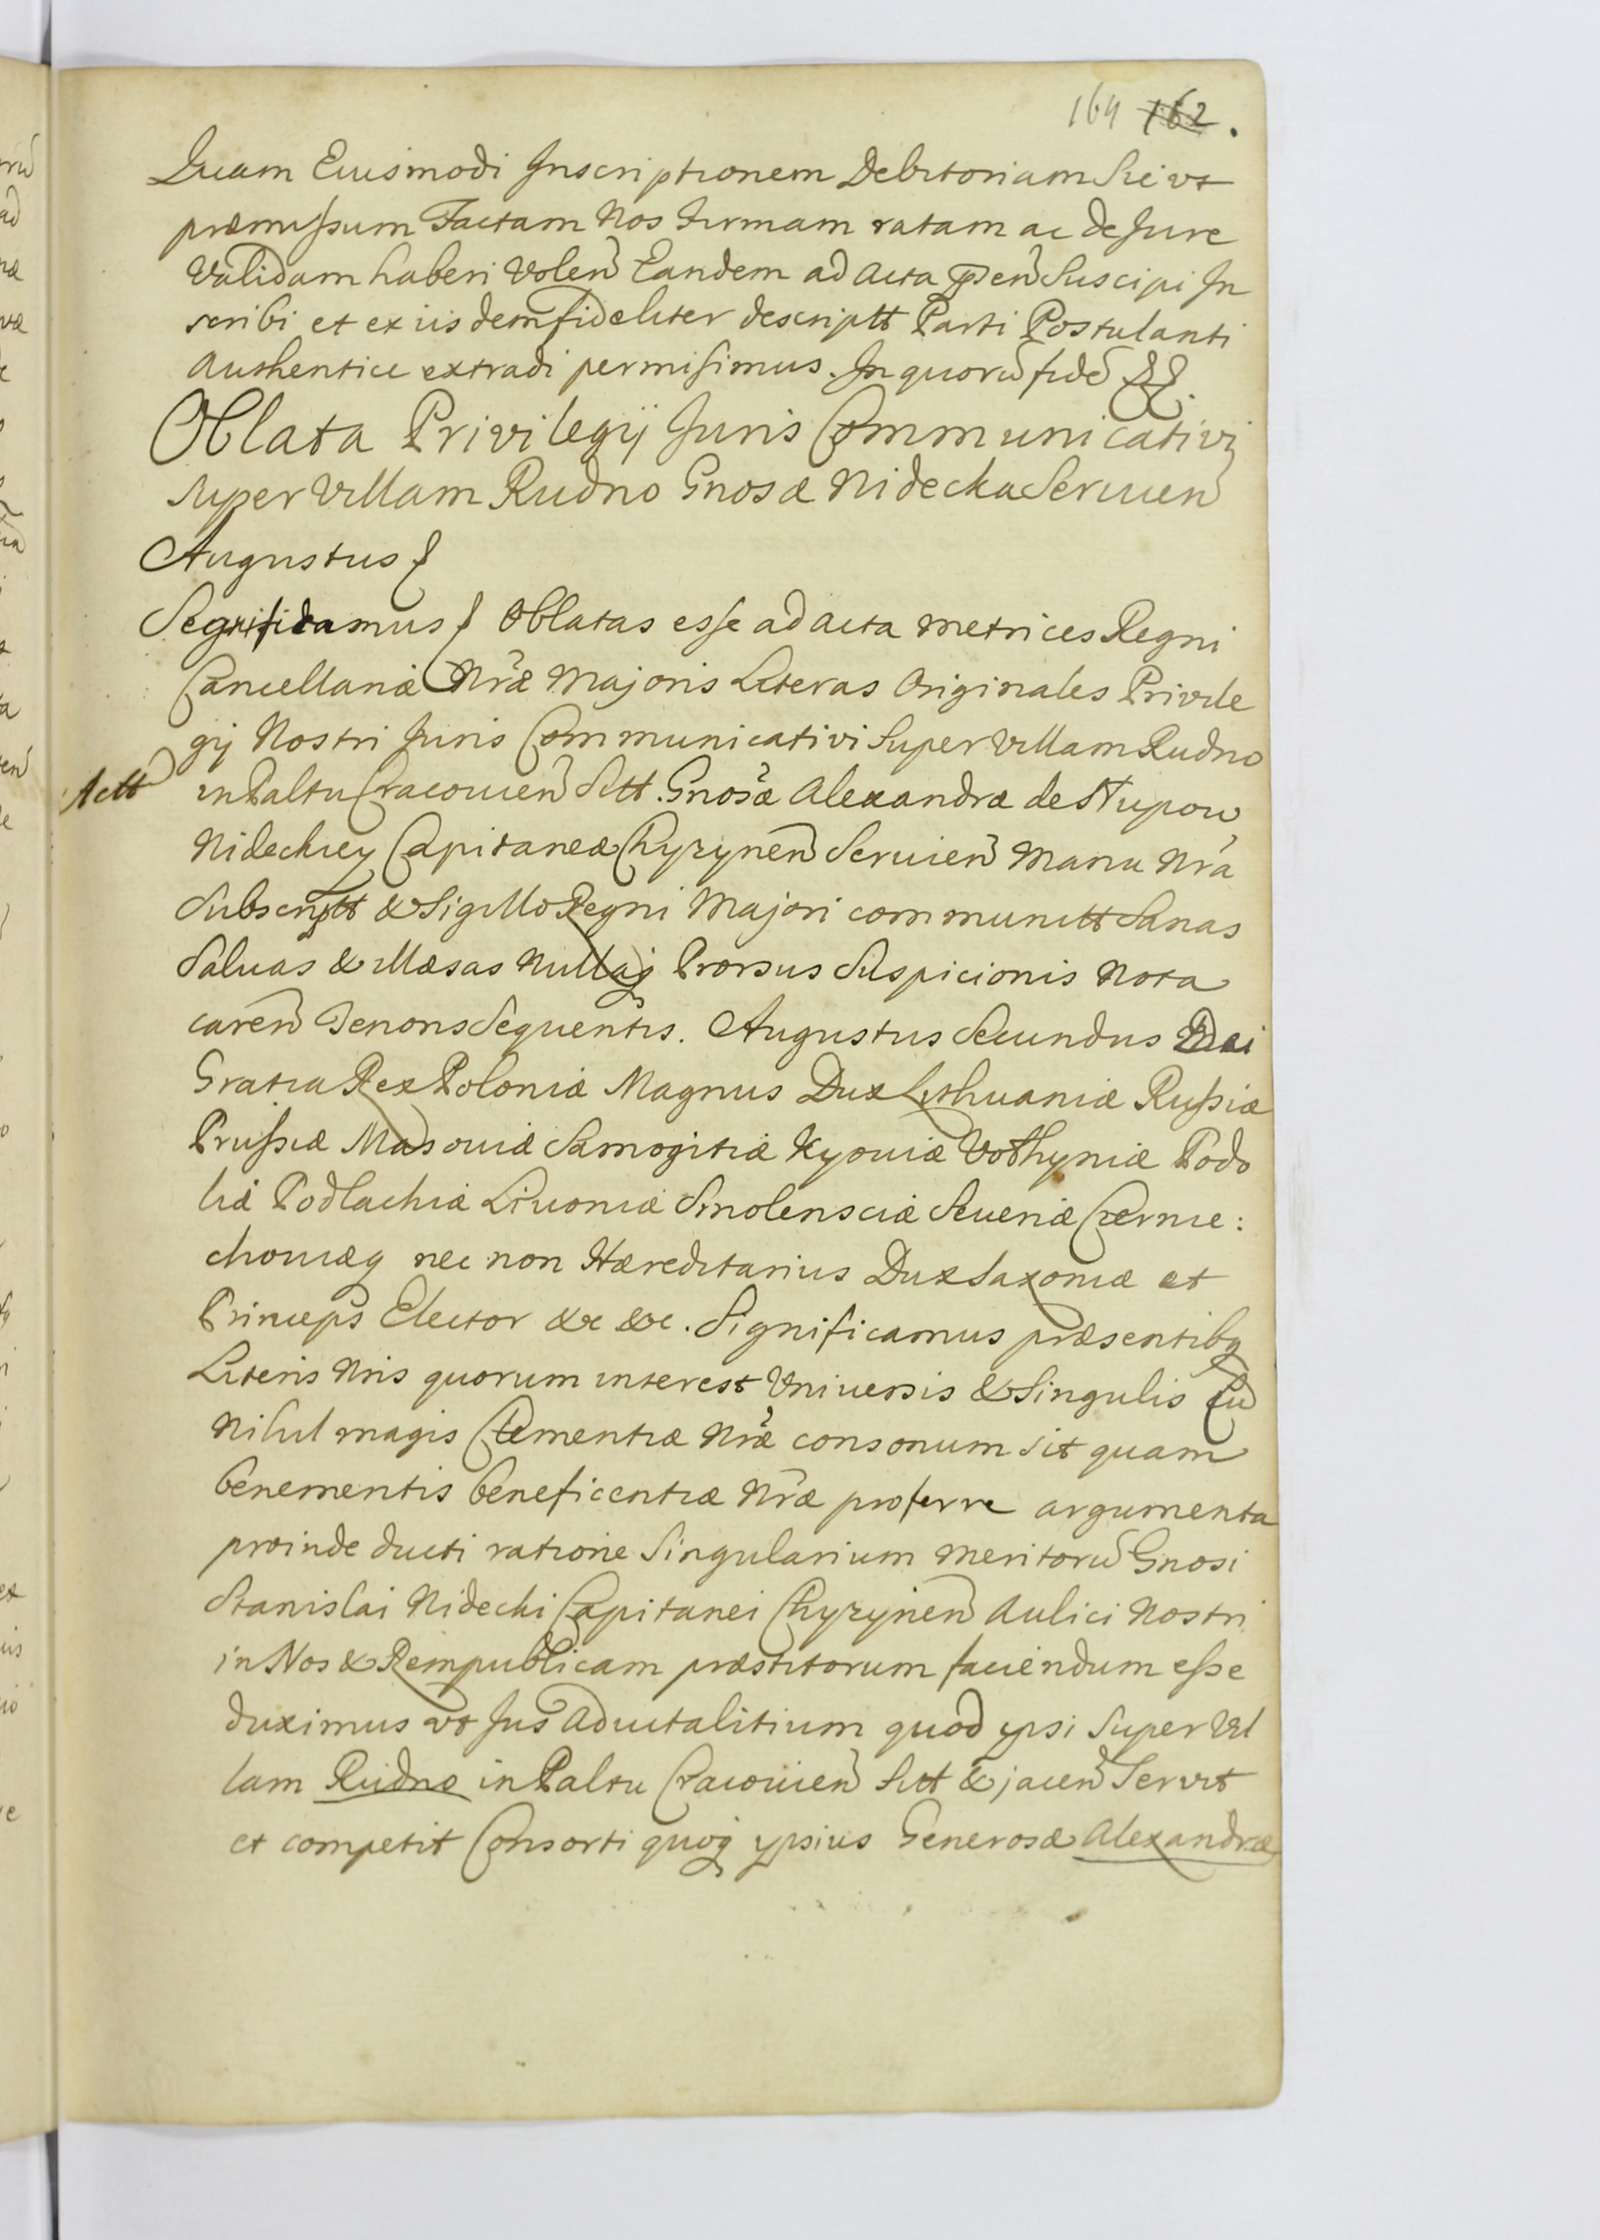 164 162.
Quam Eiusmodi Inscriptionem Debitoriam Sic vt
præmissum Factam Nos Firmam ratam ac de Jure
Validam haberi Volen̄ Eandem ad Acta p̄sen̄ Suscipi In
scribi et ex iisdem fideliter descriptt Parti Postulanti
Authentice extradi permisimus. In quorū fidē
Oblata Privilegij Juris Communicativi
super Villam Rudno Gnosæ Nidecka Seruien̄
Augustus
Significamus Oblatas esse ad acta metrices Regni
Cancellariæ Nr̄æ Majoris Literas Originales Privile
gij Nostri Juris Communicativi Super Villam Rudno
Actt
in Paltu Cracouien̄ Sitt. Gnosæ Alexandræ de Stupow
Nideckiey Capitaneæ Chyzynen̄ Seruien̄ Manu Nr̄a
Subscriptt & Sigillo Regni Majori communitt Sanas
Saluas & Illæsas Nullaq Prorsus Suspicionis Nota
caren̄ Tenoris Sequentis. Augustus Secundus Dei
Gratia Rex Poloniæ Magnus Dux Lithuaniæ Russiæ
Prussiæ Masouiæ Samogitiæ Kyouiæ Volhyniæ Podo
liæ Podlachiæ Liuoniæ Smolensciæ Seueriæ Czernie:
chouiæq nec non Hæreditarius Dux Saxoniæ et
Princeps Elector &c &c. Significamus præsentibq
Literis Nris quorum interest Vniuersis & Singulis Cū
Nihil magis Clementiæ Nr̄æ consonum sit quam
benemeritis beneficentiæ Nr̄æ proferre argumenta
proinde ducti ratione Singularium meritorū Gnosi
Stanislai Nidecki Capitanei Chyzynen̄ Aulici Nostri
in Nos & Rempublicam præstitorum faciendum esse
duximus vt Jus Aduitalitium quod ipsi Super Vil
lam Rudno in Paltu Cracouien̄ Sitt & jacen̄ Servit
et competit Consorti quoq ypsius Generosæ Alexandræ